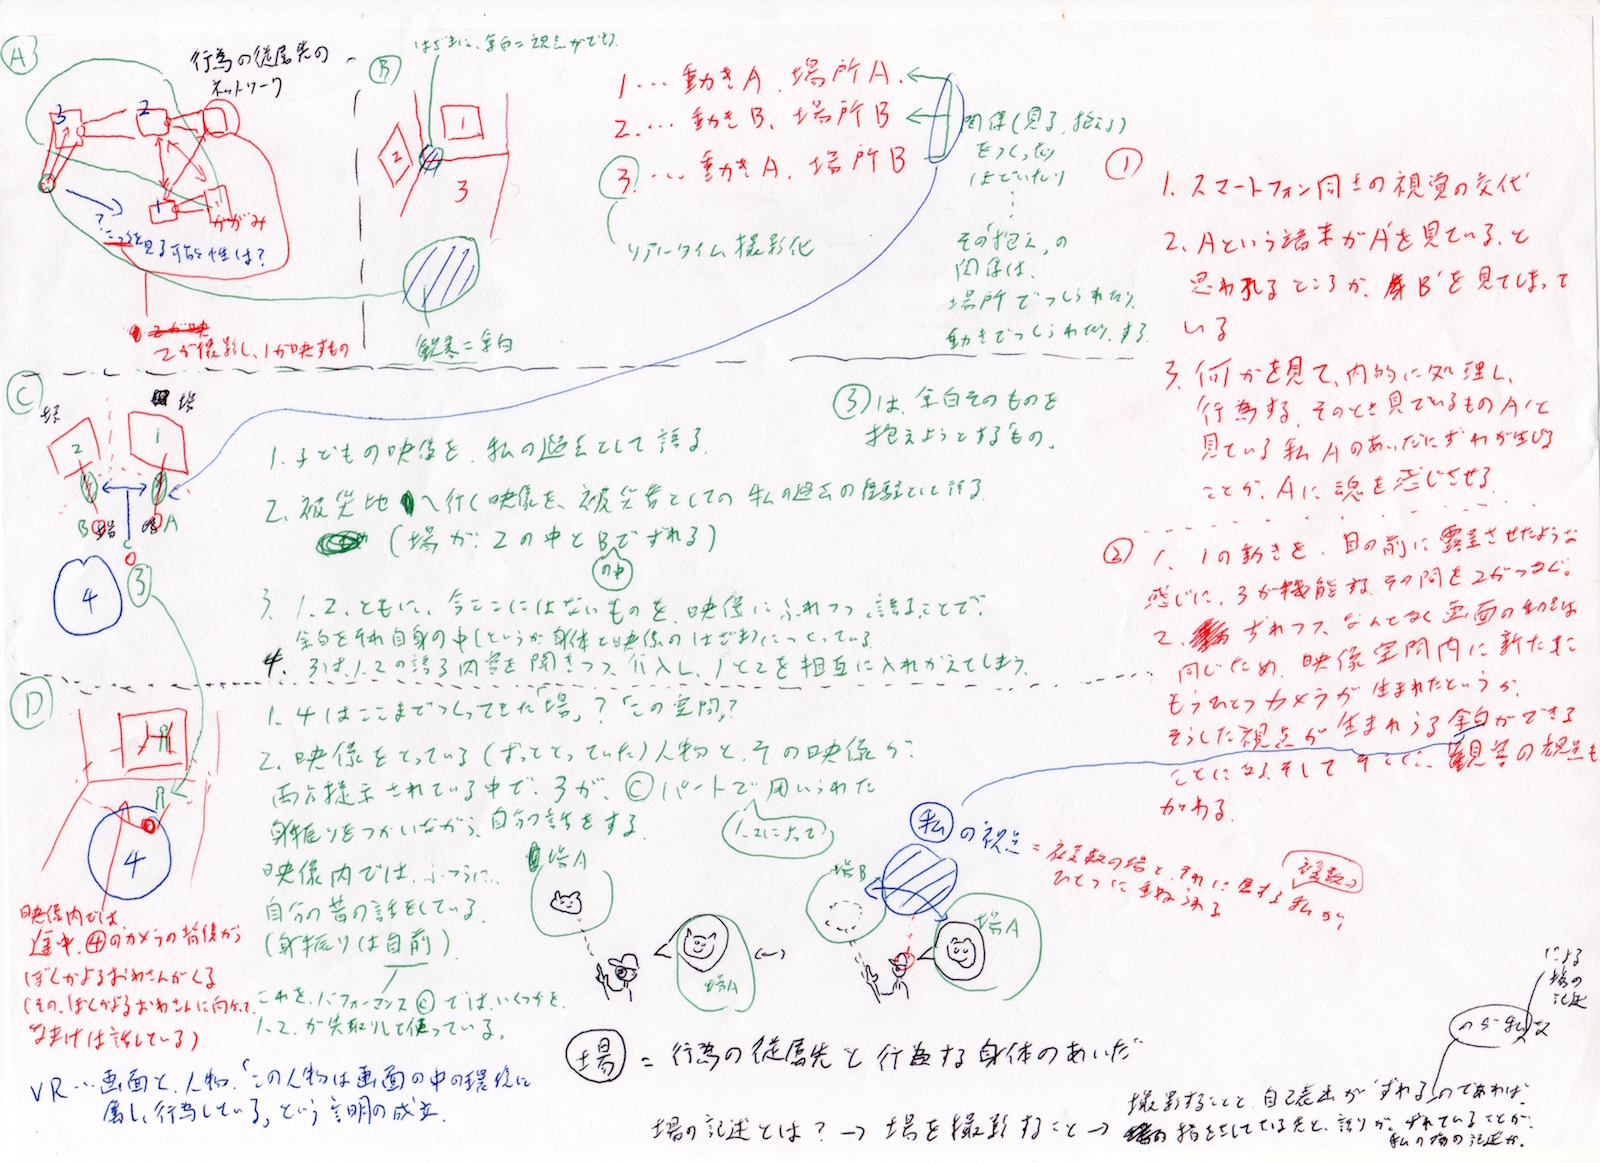 A
行為の従属先の
ネットワーク
3
2
1
1
かがみ
?
こっちを見る可能性は?
2が撮影し、1が映すもの
B
はざまに、余白=視点ができる
1
2
3
観客=余白
1… 動きA、場所A.
2.… 動きB、場所B
3.… 動きA、場所B
リアルタイム撮影化
関係(見る、抱える)
をつくったり
ほどいたり
その「抱え」の
関係は、
場所でつくられたり、
動きでつくられたりする.
①
1. スマートフォン同士の視覚の交代
2. Aという端末がA'を見ている、と
思われるところが、B'を見てしまって
いる
3. 何かを見て、内的に処理し、
行為する、そのとき見ているものA'と
見ている私Aのあいだにずれが生じる
ことが、Aに魂を感じさせる.
②
1. 1の動きを、目の前に露呈させたような
感じに、3が機能する、その間を2がつなぐ。
2. ずれつつ、なんとなく画面の動きは
同じため、映像空間内に新たに
もうひとつカメラが生まれたというか、
そうした視点が生まれうる余白ができる
ことになる、そしてそこに、観客の視点も
加わる.
C
場
場
2
1
B
場
A
4
3
③は、余白そのものを
抱えようとするもの.
1. 子どもの映像を、私の過去として語る.
2. 被災地へ行く映像を、被災者としての私の過去の経験として語る.
(場が、2の中とBでずれる)
の中
3. 1.2.ともに、今ここにはないものを、映像にふれつつ、語ることで、
余白をそれ自身の中(というか身体と映像のはざま)につくっている
4. 3は、1.2の語る内容を聞きつつ、介入し、1と2を相互に入れかえてしまう.
D
4
1. 4はここまでつくってきた「場」?「この空間」?
2. 映像をとっている(ずっととっていた)人物と、その映像が、
両方提示されている中で、3が、Ⓒパートで用いられた
身振りをつかいながら、自分の話をする.
1.2によって
映像内では、ふつうに、
自分の昔の話をしている.
(身振りは自前)
これを、パフォーマンスⒸでは、いくつかを、
1.2.が先取りして使っている.
映像内では、
途中、④のカメラの背後から
ぼくがよるおわさんがくる
(その、ぼくがよるおわさんに向かって、
なまけは話している)
VR…画面と、人物、「この人物は画面の中の環境に
属し、行為している」という説明の成立.
場A
場A
場B
場A
私の視点=複数の場と、それに属する複数の私が、
ひとつに重ねられる
場=行為の従属先と行為する身体のあいだ
場の記述とは?→場を撮影すること→
撮影することと、自己表出が「ずれる」のであれば、
指をさしている先と、語りが、ずれていることが、
私の場の記述か.
による
場の
記述